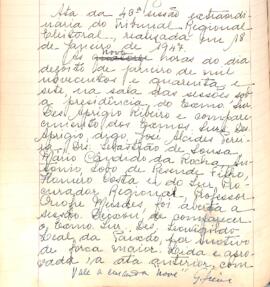 Ata da 43ª sessão extraordi-
nária do Tribunal Regional
Eleitoral, realizada em 18
de janeiro de 1947.
Às nove horas do dia
dezoito de janeiro de mil
novecentos e quarenta e
sete, na sala das sessões sob
a presidência do Exmo. Snr.
Des. Aprigio Ribeiro e compare-
cimento dos Exmos. Snrs. Des.
Aprigio, digo, José Alcides Perei-
ra, Drs. Sebastião de Sousa,
Mario Candido da Rocha,
Lobo de Resende Filho,
Costa e do Snr. Pro-
curador Regional, Professor
Onofre Mendes, foi aberta a
sessão. Deixou de comparecer
o Exmo. Snr. Des. Leovigildo
Leal da Paixão, por motivo
de força maior. Lida e apro-
vada a ata anterior, com
Vale a emenda "nove"